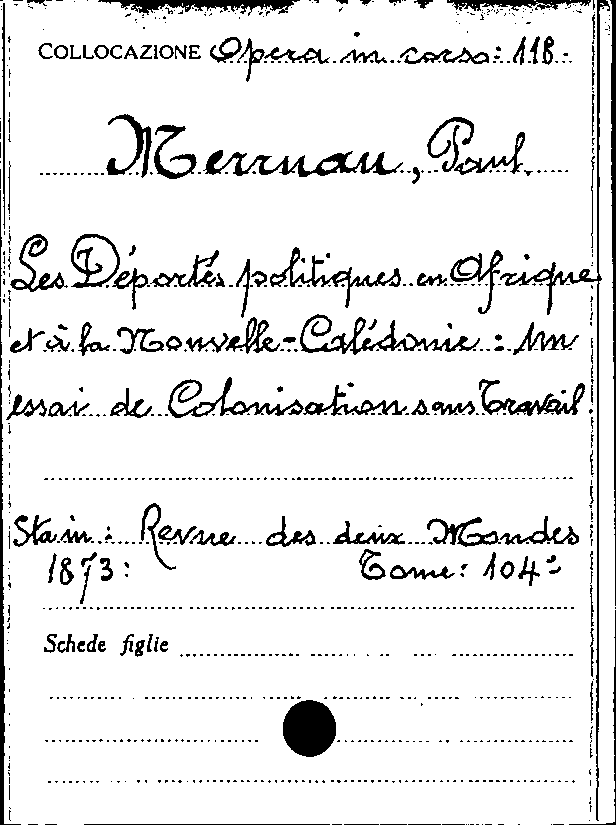 COLLOCAZIONE Opera in corso: 118.
Merruau, Paul.
Les Déportés politiques en Afrique
et à la Nouvelle-Calédonie: Un
essai de Colonisation sans Travail.
Sta in: Revue des deux Mondes
1873: Tome: 104º
Schede figlie